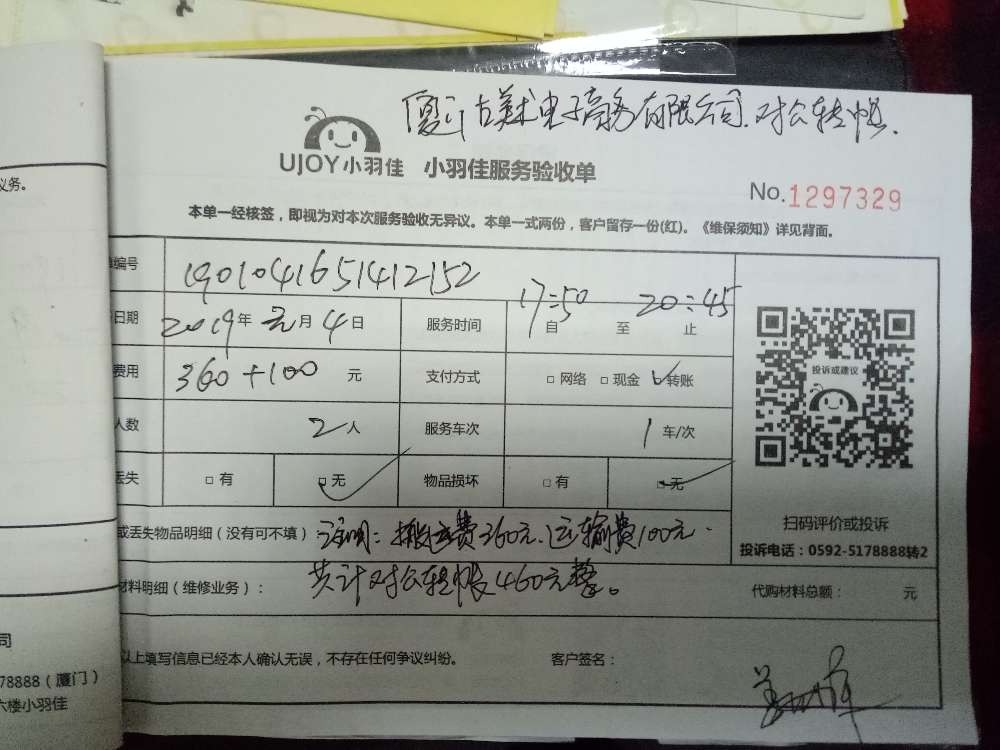 厦门古美术电子商务有限公司.对公转帐.
UJOY小羽佳 小羽佳服务验收单
No.1297329
本单一经核签，即视为对本次服务验收无异议。本单一式两份，客户留存一份(红)。《维保须知》详见背面。
义务。
编号 1901041651412152
日期 2019年 元月 4日 服务时间 17:50 自 至 20:45 止
费用 360+100 元 支付方式 □ 网络 □ 现金 ☑ 转账
人数 2人 服务车次 1 车/次
丢失 □ 有 □ 无 物品损坏 □ 有 □ 无
投诉或建议
扫码评价或投诉
投诉电话：0592-5178888转2
或丢失物品明细（没有可不填）注明：搬运费360元.运输费100元.
共计对公转帐460元整。
材料明细（维修业务）： 代购材料总额： 元
以上填写信息已经本人确认无误，不存在任何争议纠纷。 客户签名：
司
78888（厦门）
六楼小羽佳